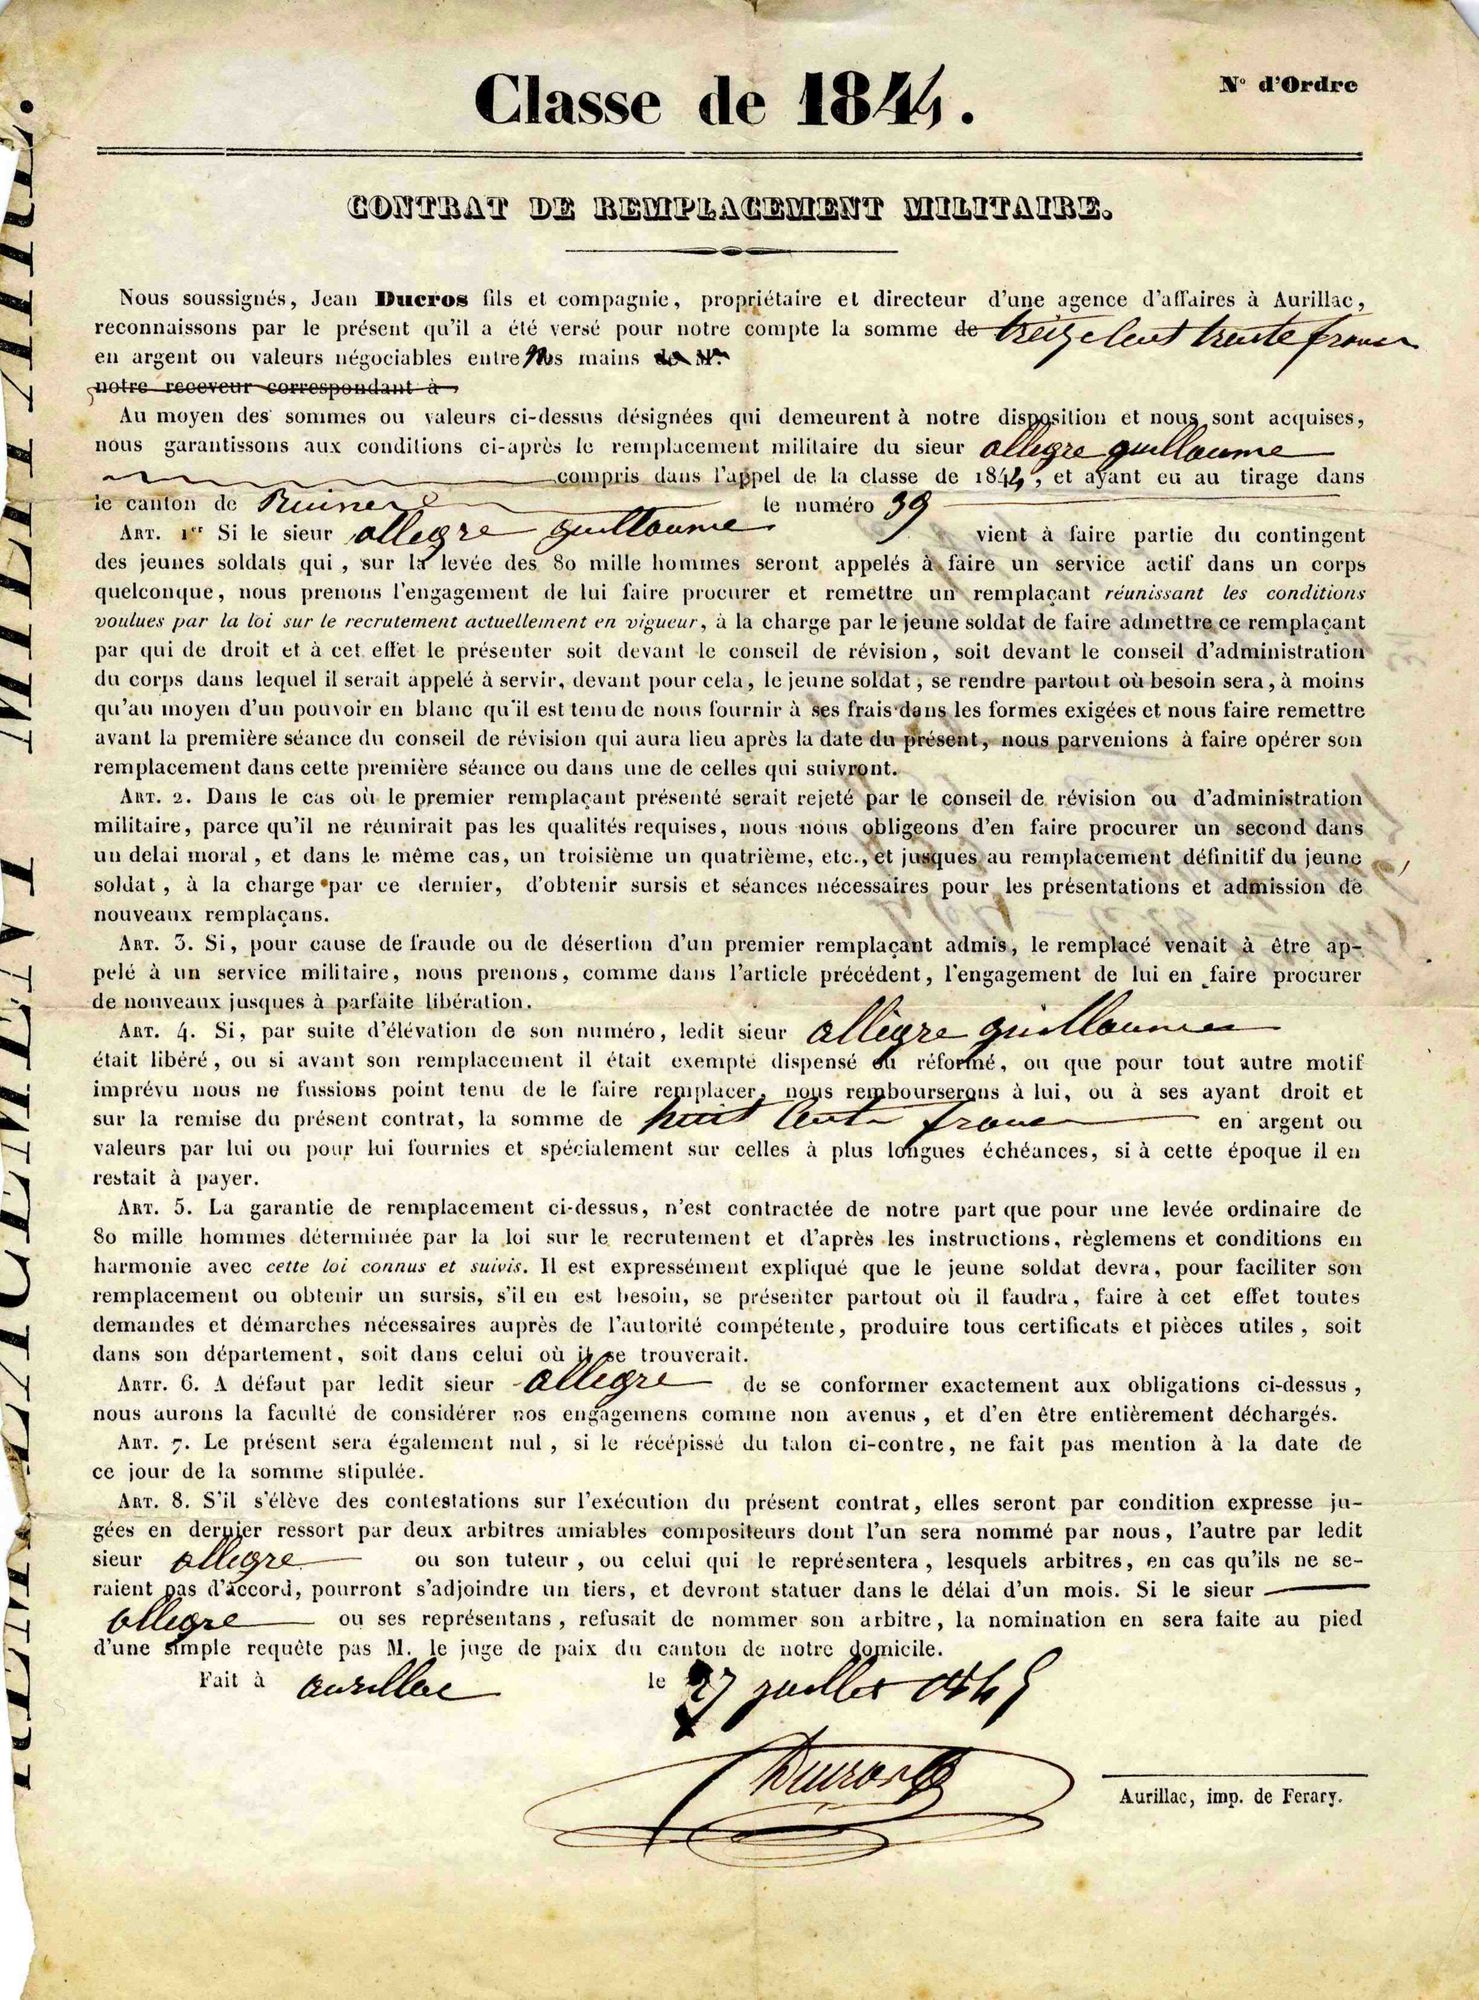 Classe de 1844.
N° d'Ordre
CONTRAT DE REMPLACEMENT MILITAIRE.
Nous soussignés, Jean Ducros fils et compagnie, propriétaire et directeur d'une agence d'affaires à Aurillac,
reconnaissons par le présent qu'il a été versé pour notre compte la somme de treize cent trente francs
en argent ou valeurs négociables entre nos mains de Mr
notre receveur correspondant à
Au moyen des sommes ou valeurs ci-dessus désignées qui demeurent à notre disposition et nous sont acquises,
nous garantissons aux conditions ci-après le remplacement militaire du sieur allegre guillaume
compris dans l'appel de la classe de 1844, et ayant eu au tirage dans
le canton de Ruines le numéro 39
ART. 1er Si le sieur allegre guillaume vient à faire partie du contingent
des jeunes soldats qui, sur la levée des 80 mille hommes seront appelés à faire un service actif dans un corps
quelconque, nous prenons l'engagement de lui faire procurer et remettre un remplaçant réunissant les conditions
voulues par la loi sur le recrutement actuellement en vigueur, à la charge par le jeune soldat de faire admettre ce remplaçant
par qui de droit et à cet effet le présenter soit devant le conseil de révision, soit devant le conseil d'administration
du corps dans lequel il serait appelé à servir, devant pour cela, le jeune soldat, se rendre partout où besoin sera, à moins
qu'au moyen d'un pouvoir en blanc qu'il est tenu de nous fournir à ses frais dans les formes exigées et nous faire remettre
avant la première séance du conseil de révision qui aura lieu après la date du présent, nous parvenions à faire opérer son
remplacement dans cette première séance ou dans une de celles qui suivront.
ART. 2. Dans le cas où le premier remplaçant présenté serait rejeté par le conseil de révision ou d'administration
militaire, parce qu'il ne réunirait pas les qualités requises, nous nous obligeons d'en faire procurer un second dans
un delai moral, et dans le même cas, un troisième un quatrième, etc., et jusques au remplacement définitif du jeune
soldat, à la charge par ce dernier, d'obtenir sursis et séances nécessaires pour les présentations et admission de
nouveaux remplaçans.
ART. 3. Si, pour cause de fraude ou de désertion d'un premier remplaçant admis, le remplacé venait à être ap-
pelé à un service militaire, nous prenons, comme dans l'article précédent, l'engagement de lui en faire procurer
de nouveaux jusques à parfaite libération.
ART. 4. Si, par suite d'élévation de son numéro, ledit sieur allègre guillaume
était libéré, ou si avant son remplacement il était exempté dispensé ou réformé, ou que pour tout autre motif
imprévu nous ne fussions point tenu de le faire remplacer, nous rembourserons à lui, ou à ses ayant droit et
sur la remise du présent contrat, la somme de huit cents francs en argent ou
valeurs par lui ou pour lui fournies et spécialement sur celles à plus longues échéances, si à cette époque il en
restait à payer.
ART. 5. La garantie de remplacement ci-dessus, n'est contractée de notre part que pour une levée ordinaire de
80 mille hommes déterminée par la loi sur le recrutement et d'après les instructions, règlemens et conditions en
harmonie avec cette loi connus et suivis. Il est expressément expliqué que le jeune soldat devra, pour faciliter son
remplacement ou obtenir un sursis, s'il en est besoin, se présenter partout où il faudra, faire à cet effet toutes
demandes et démarches nécessaires auprès de l'autorité compétente, produire tous certificats et pièces utiles, soit
dans son département, soit dans celui où il se trouverait.
ARTR. 6. A défaut par ledit sieur allegre de se conformer exactement aux obligations ci-dessus,
nous aurons la faculté de considérer nos engagemens comme non avenus, et d'en être entièrement déchargés.
ART. 7. Le présent sera également nul, si le récépissé du talon ci-contre, ne fait pas mention à la date de
ce jour de la somme stipulée.
ART. 8. S'il s'élève des contestations sur l'exécution du présent contrat, elles seront par condition expresse ju-
gées en dernier ressort par deux arbitres amiables compositeurs dont l'un sera nommé par nous, l'autre par ledit
sieur allegre ou son tuteur, ou celui qui le représentera, lesquels arbitres, en cas qu'ils ne se-
raient pas d'accord, pourront s'adjoindre un tiers, et devront statuer dans le délai d'un mois. Si le sieur
allegre ou ses représentans, refusait de nommer son arbitre, la nomination en sera faite au pied
d'une simple requête pas M. le juge de paix du canton de notre domicile.
Fait à aurillac le 27 juillet 1845
Ducros
Aurillac, imp. de Ferary.